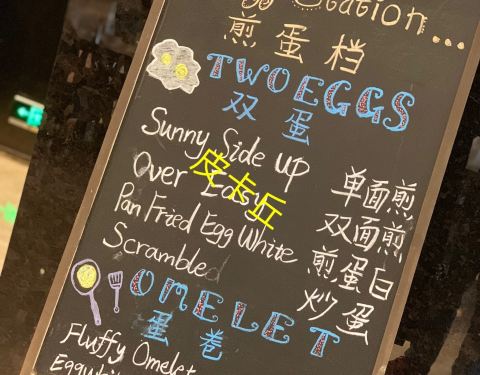 Egg Station...
煎蛋档
TWO EGGS
双蛋
Sunny Side up 单面煎
Over Easy 双面煎
皮卡丘
Pan Fried Egg White 煎蛋白
Scrambled 炒蛋
OMELET
蛋卷
Fluffy Omelet